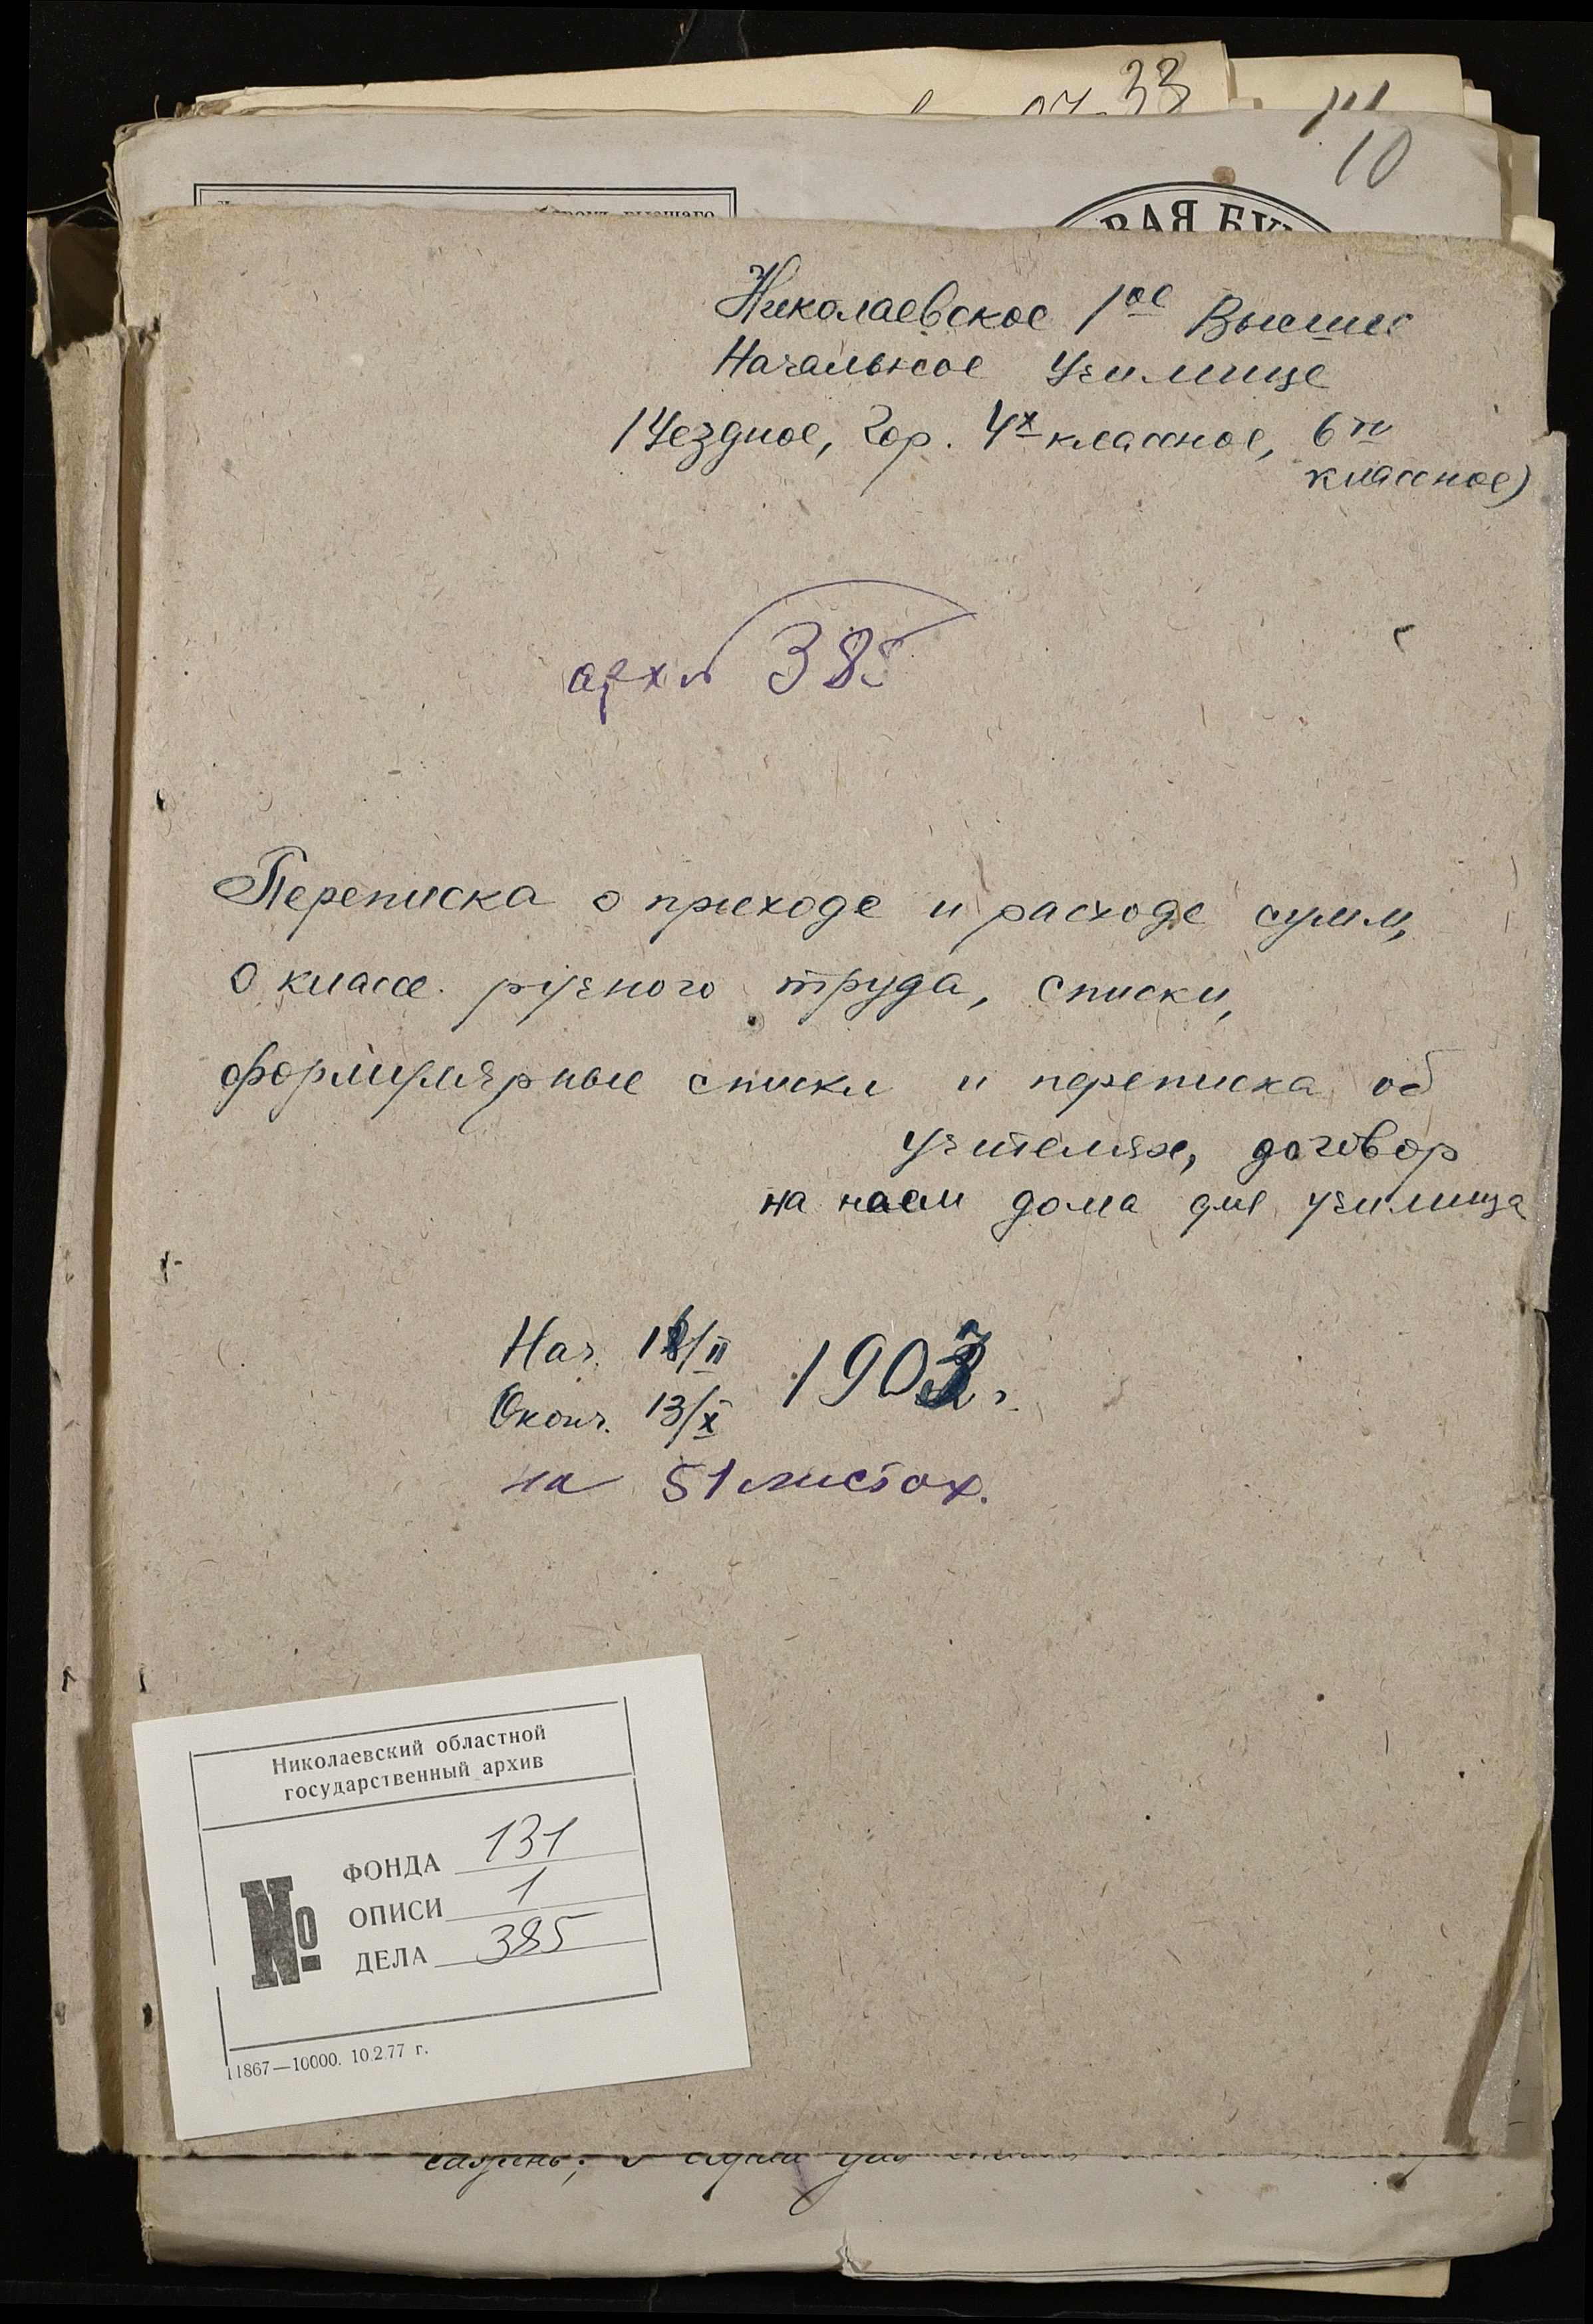 33
10
ВАЯ БУ
Николаевское 1ое Высшее
Начальное Училище
(Уездное, Гор. 4х классное, 6ти
классное)
арх № 385
Переписка о приходе и расходе сумм,
о классе ручного труда, списки,
формулярные списки и переписка об
учителях, договор
на наем дома для училища
Нач. 18/II 1903 г.
Оконч. 13/X
на 51 листах.
Николаевский областной
государственный архив
№
ФОНДА 131
ОПИСИ 1
ДЕЛА 385
11867—10000. 10.2.77 г.